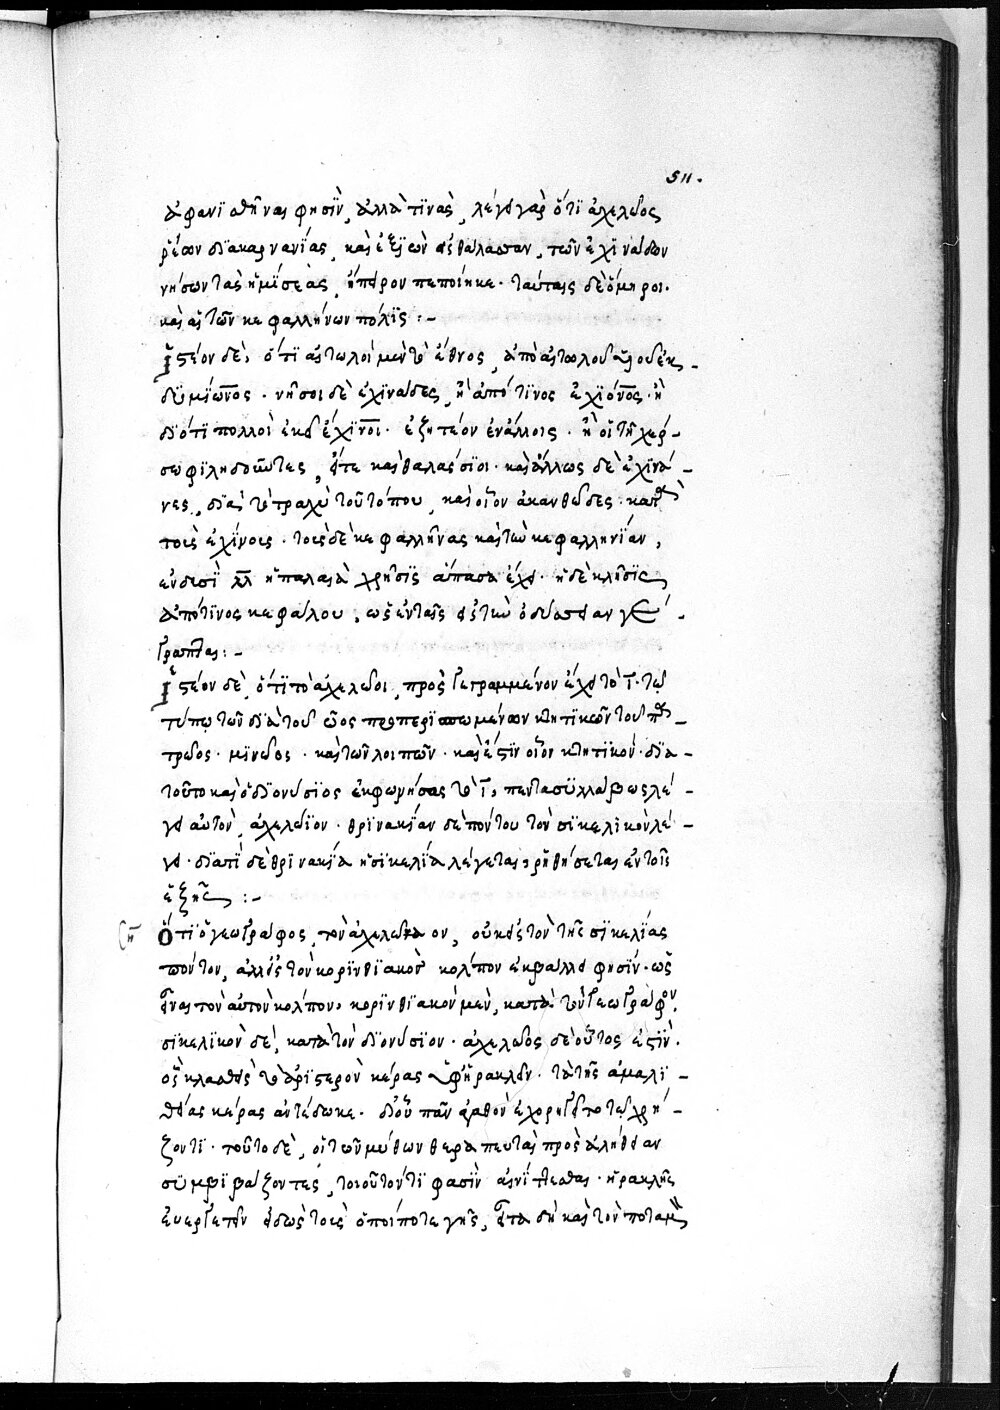 ἀφανϊσθῆναι φησὶν, ἀλλὰ τϊνὰς, λέγει γὰρ ὅτϊ ἀχελῶος
ῥέων δϊ ἀκαρνανίας, καὶ ἐξϊὼν εἰς θάλασσαν, τῶν ἐχϊνάδων
νήσων τὰς ἡμϊσείας, ἤπειρον πεποίηκε. ταύταις δὲ ὅμηροι.
καὶ αἱ τῶν κεφαλλήνων πόλϊς :-
Ἰστέον δὲ, ὅτϊ αἰτωλοὶ μὲν τὸ ἔθνος, ἀπὸ αἰτωλοῦ υἱοῦ ἐν-
δυμίωνος. νῆσοι δὲ ἐχϊνάδες, ἢ ἀπό τϊνος ἐχϊόνος. ἢ
δϊότϊ πολλοὶ ἐκεῖ ἐχῖνοι. ἐζητέον ἐν ἄλλοις. ἢ οἱ τῆ χέρ-
σῳ φϊληδοῦντες, εἴτε καὶ θαλάσσϊοι. καὶ ἄλλως δὲ ἐχϊνά-
νες, διὰ τὸ τραχὺ τοῦ τόπου, καὶ οἷον ἀκανθῶδες. κατὰ
τοὺς ἐχίνοις. τοὺς δὲ κεφαλλῆνας καὶ τὴν κεφαλληνίαν,
ἐν δυσὶ λλ ἡ παλαιὰ χρῆσϊς ἅπασα ἔχει. ἡ δὲ κλῆσϊς
ἀπό τϊνος κεφάλου, ὡς ἐν ταῖς εἰς τὴν ὀδύσσειαν γέ-
γραπται :-
Ἰστέον δὲ, ὅτϊ τὸ ἀχελώϊοι, προσγεγραμμένον ἔχει τὸ ϊ. τῶ
τύπῳ τῶν διὰ τοῦ ῶος προπερϊσπωμένων κτητϊκῶν τοῦ πα-
τρῶος. μϊνῶος. καὶ τῶν λοιπῶν. καὶ ἔστϊν οἷον κτητϊκόν. δϊὰ
τοῦτο καὶ ὁ δϊονύσϊος ἐκφωνήσας τὸ ϊ, πεντασϋλλάβως λέ-
γει αὐτὸν, ἀχελώϊον. θρϊνακίαν δὲ πόντου τὸν σϊκελϊκὸν λέ-
γει. δϊατὶ δὲ θρϊνακία ἡ σϊκελία λέγεται, ῥηθήσεται ἐν τοῖς
ἑξῆς :-
Ὅτϊ ὁ γεωγράφος, τὸν ἀχελῶον, οὐκ εἰς τὸν τῆς σϊκελίας
πόντον, ἀλλ' εἰς τὸν κορϊνθϊακὸν κόλπον ἐκβάλλειν φησίν. ὡς
εἶναι τὸν αὐτὸν κόλπον, κορϊνθϊακὸν μὲν, κατὰ τὸν γεωγράφον,
σϊκελϊκὸν δὲ, κατὰ τὸν δϊονύσϊον. ἀχελῶος δὲ οὗτος ἐστϊν.
ὃς κλασθεὶς τὸ ἀρϊστερὸν κέρας ὑφ' ἡρακλέους. τὸ τῆς ἀμαλϊ-
θείας κέρας ἀντέδωκε. δι' οὗ πᾶν ἀγαθὸν ἐχορηγεῖτο τῶ χρή-
ζοντϊ. τοῦτο δὲ, οἱ τῶν μύθων θεραπευταὶ πρὸς ἀλήθειαν
σϋμβϊβάζοντες, τοιοῦτόν τϊ φασὶν αἰνίττεσθαι. ἡρακλῆς
εὐεργετεῖν εἰδὼς τοὺς ὅποι ποτε γῆς, εἶτα δὴ καὶ τὸν ποταμὸν